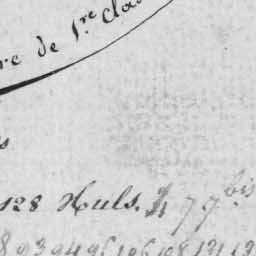 re de 1.re Clas
s
128 Huls. 77 bis
8 93 94 95 106 108 131